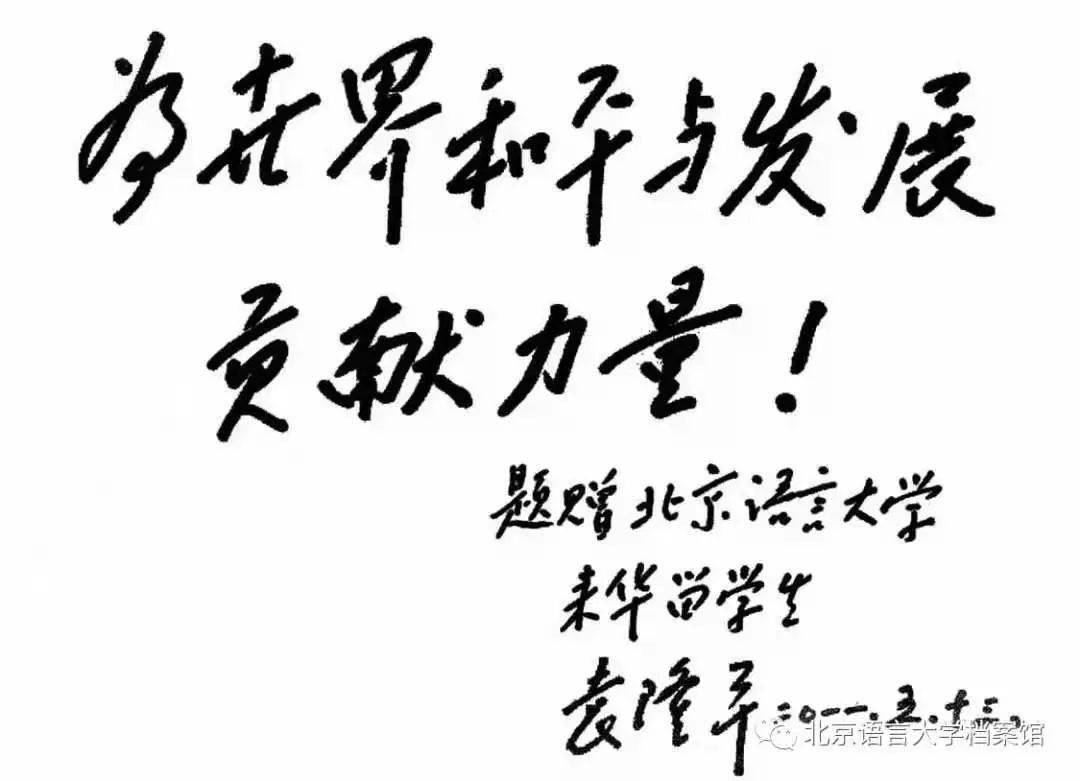 为世界和平与发展
贡献力量！
题赠北京语言大学
来华留学生
袁隆平 二〇一一.五.十三.
北京语言大学档案馆